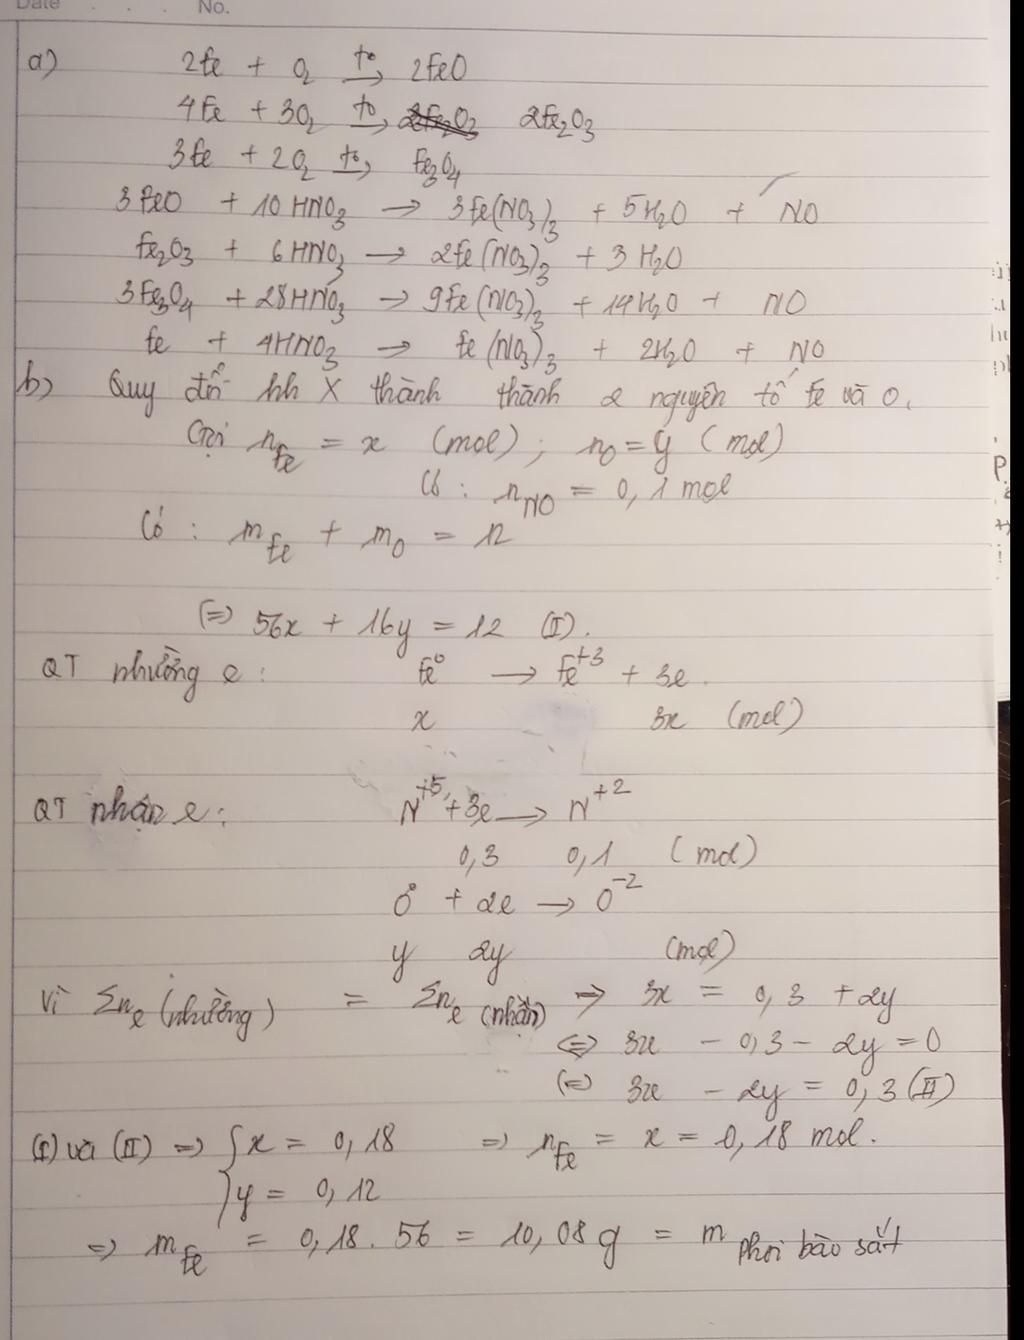 Date No.
a) 2Fe + O₂ →(t°) 2FeO
4Fe + 3O₂ →(t°) 2Fe₂O₃
3Fe + 2O₂ →(t°) Fe₃O₄
3FeO + 10HNO₃ → 3Fe(NO₃)₃ + 5H₂O + NO
Fe₂O₃ + 6HNO₃ → 2Fe(NO₃)₃ + 3H₂O
3Fe₃O₄ + 28HNO₃ → 9Fe(NO₃)₃ + 14H₂O + NO
Fe + 4HNO₃ → Fe(NO₃)₃ + 2H₂O + NO
b) Quy đổi hh X thành thành 2 nguyên tố Fe và O.
Gọi n_Fe = x (mol) ; n_O = y (mol)
Có : n_NO = 0,1 mol
Có : m_Fe + m_O = 12
(=) 56x + 16y = 12 (I).
QT nhường e : Fe⁰ → Fe⁺³ + 3e.
x 3x (mol)
QT nhận e : N⁺⁵ + 3e → N⁺²
0,3 0,1 (mol)
O⁰ + 2e → O⁻²
y 2y (mol)
Vì Σn_e (nhường) = Σn_e (nhận) => 3x = 0,3 + 2y
<=> 3x - 0,3 - 2y = 0
(=) 3x - 2y = 0,3 (II)
(I) và (II) => { x = 0,18 => n_Fe = x = 0,18 mol.
y = 0,12
=> m_Fe = 0,18 . 56 = 10,08 g = m phoi bào sắt